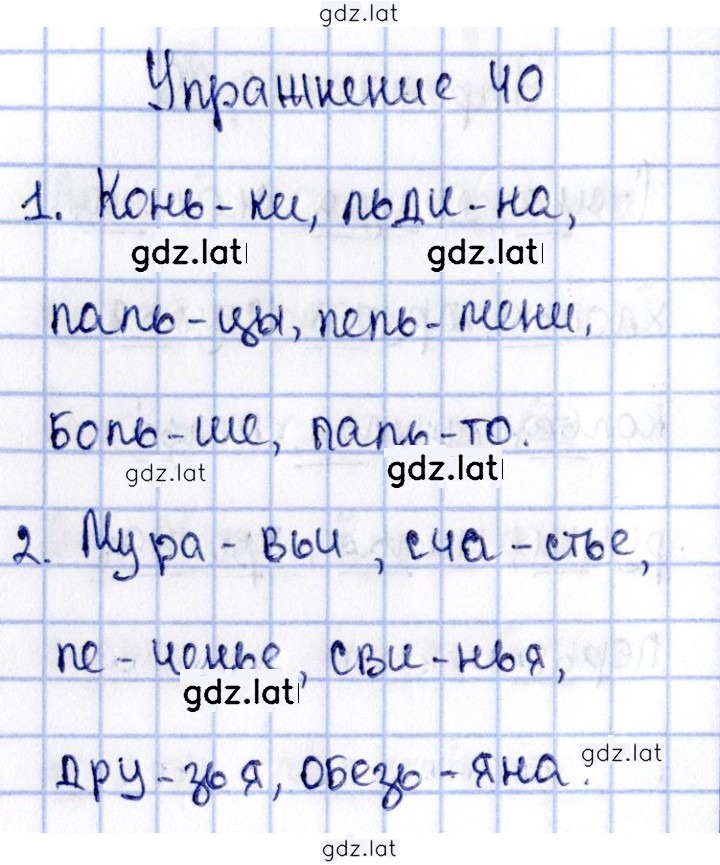 gdz.lat
Упражнение 40
1. Конь-ки, льди-на,
gdz.lat gdz.lat
паль-цы, пель-мени,
боль-ше, паль-то.
gdz.lat gdz.lat
2. Мура-вьи, сча-стье,
пе-ченье, сви-нья,
gdz.lat
дру-зья, обезь-яна.
gdz.lat
gdz.lat